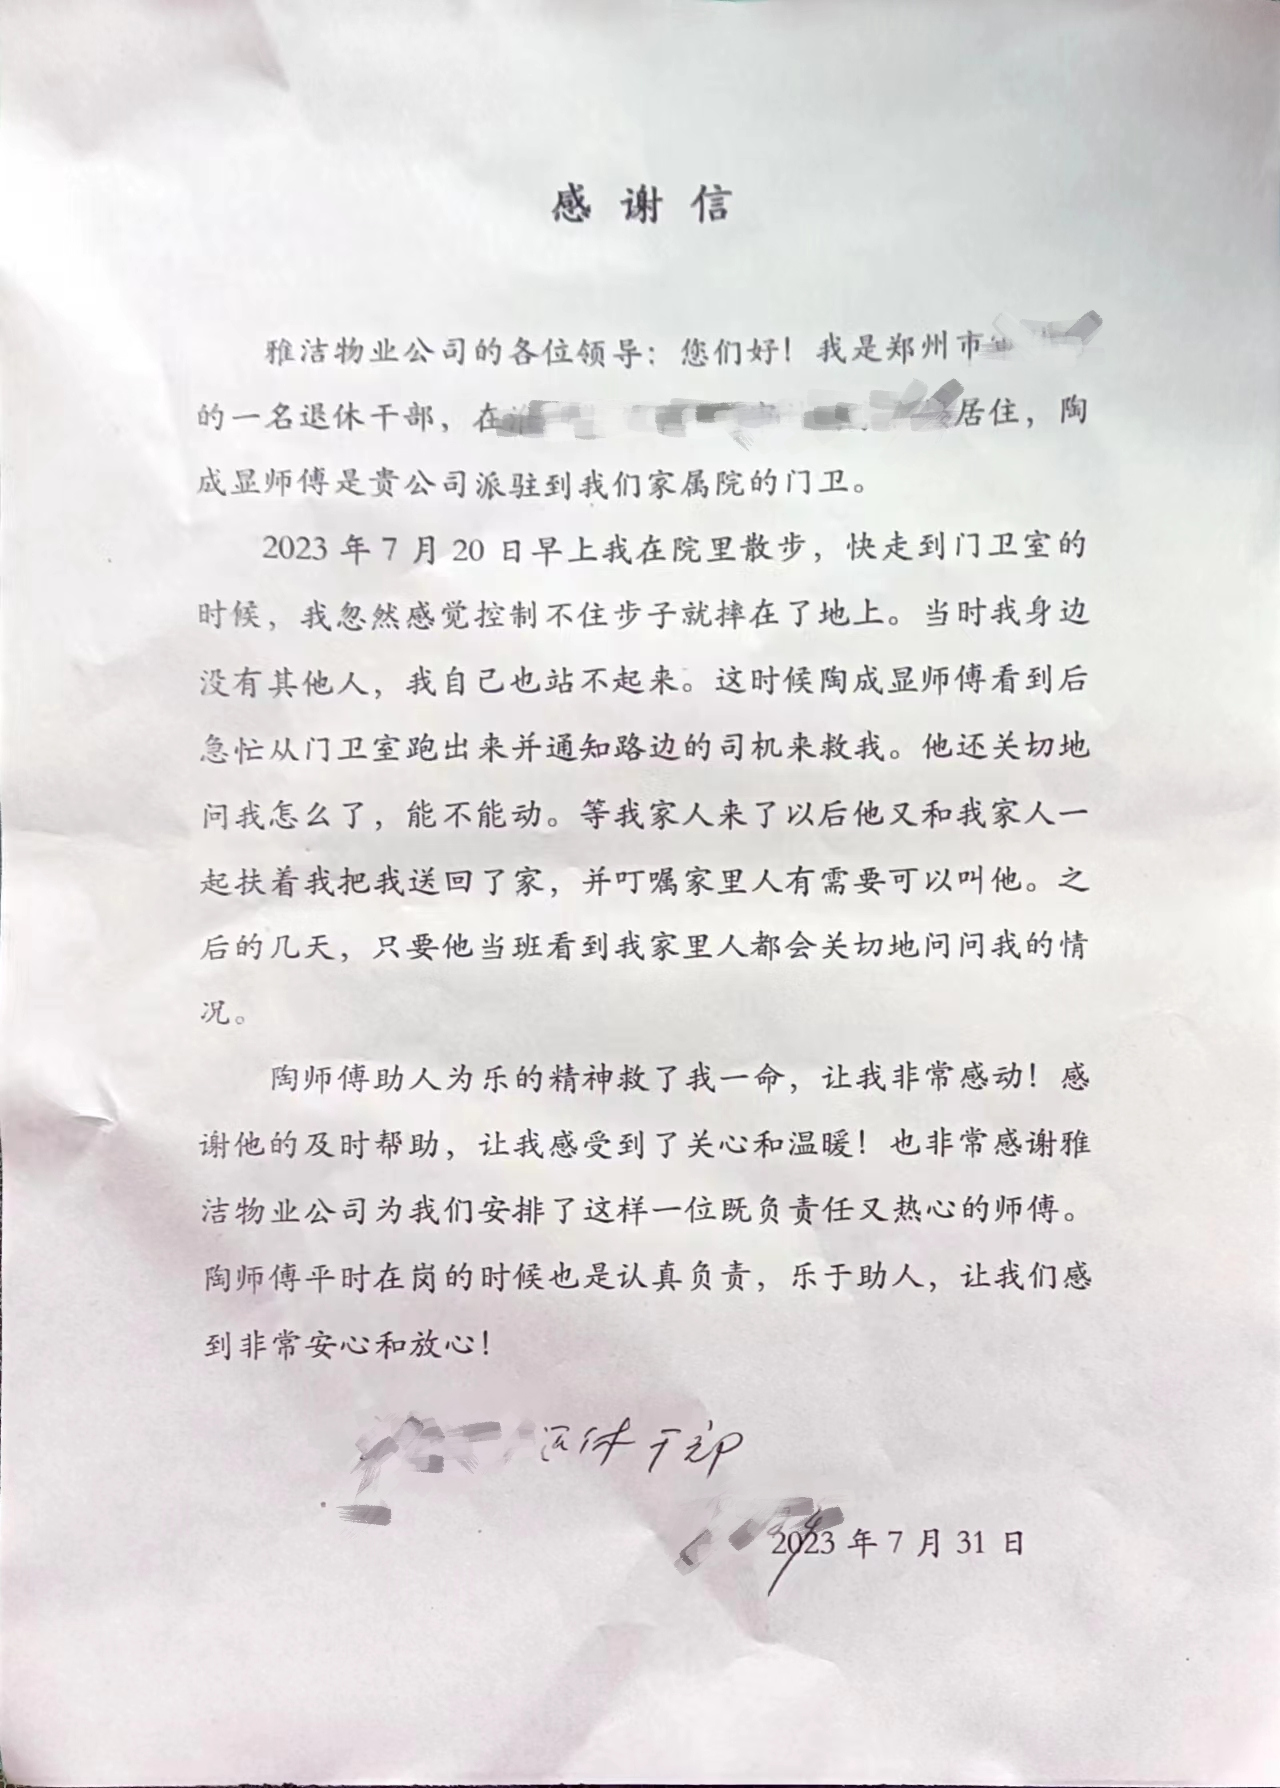 感谢信
雅洁物业公司的各位领导：您们好！我是郑州市
的一名退休干部，在居住，陶
成显师傅是贵公司派驻到我们家属院的门卫。
2023年7月20日早上我在院里散步，快走到门卫室的
时候，我忽然感觉控制不住步子就摔在了地上。当时我身边
没有其他人，我自己也站不起来。这时候陶成显师傅看到后
急忙从门卫室跑出来并通知路边的司机来救我。他还关切地
问我怎么了，能不能动。等我家人来了以后他又和我家人一
起扶着我把我送回了家，并叮嘱家里人有需要可以叫他。之
后的几天，只要他当班看到我家里人都会关切地问问我的情
况。
陶师傅助人为乐的精神救了我一命，让我非常感动！感
谢他的及时帮助，让我感受到了关心和温暖！也非常感谢雅
洁物业公司为我们安排了这样一位既负责任又热心的师傅。
陶师傅平时在岗的时候也是认真负责，乐于助人，让我们感
到非常安心和放心！
退休干部
2023年7月31日